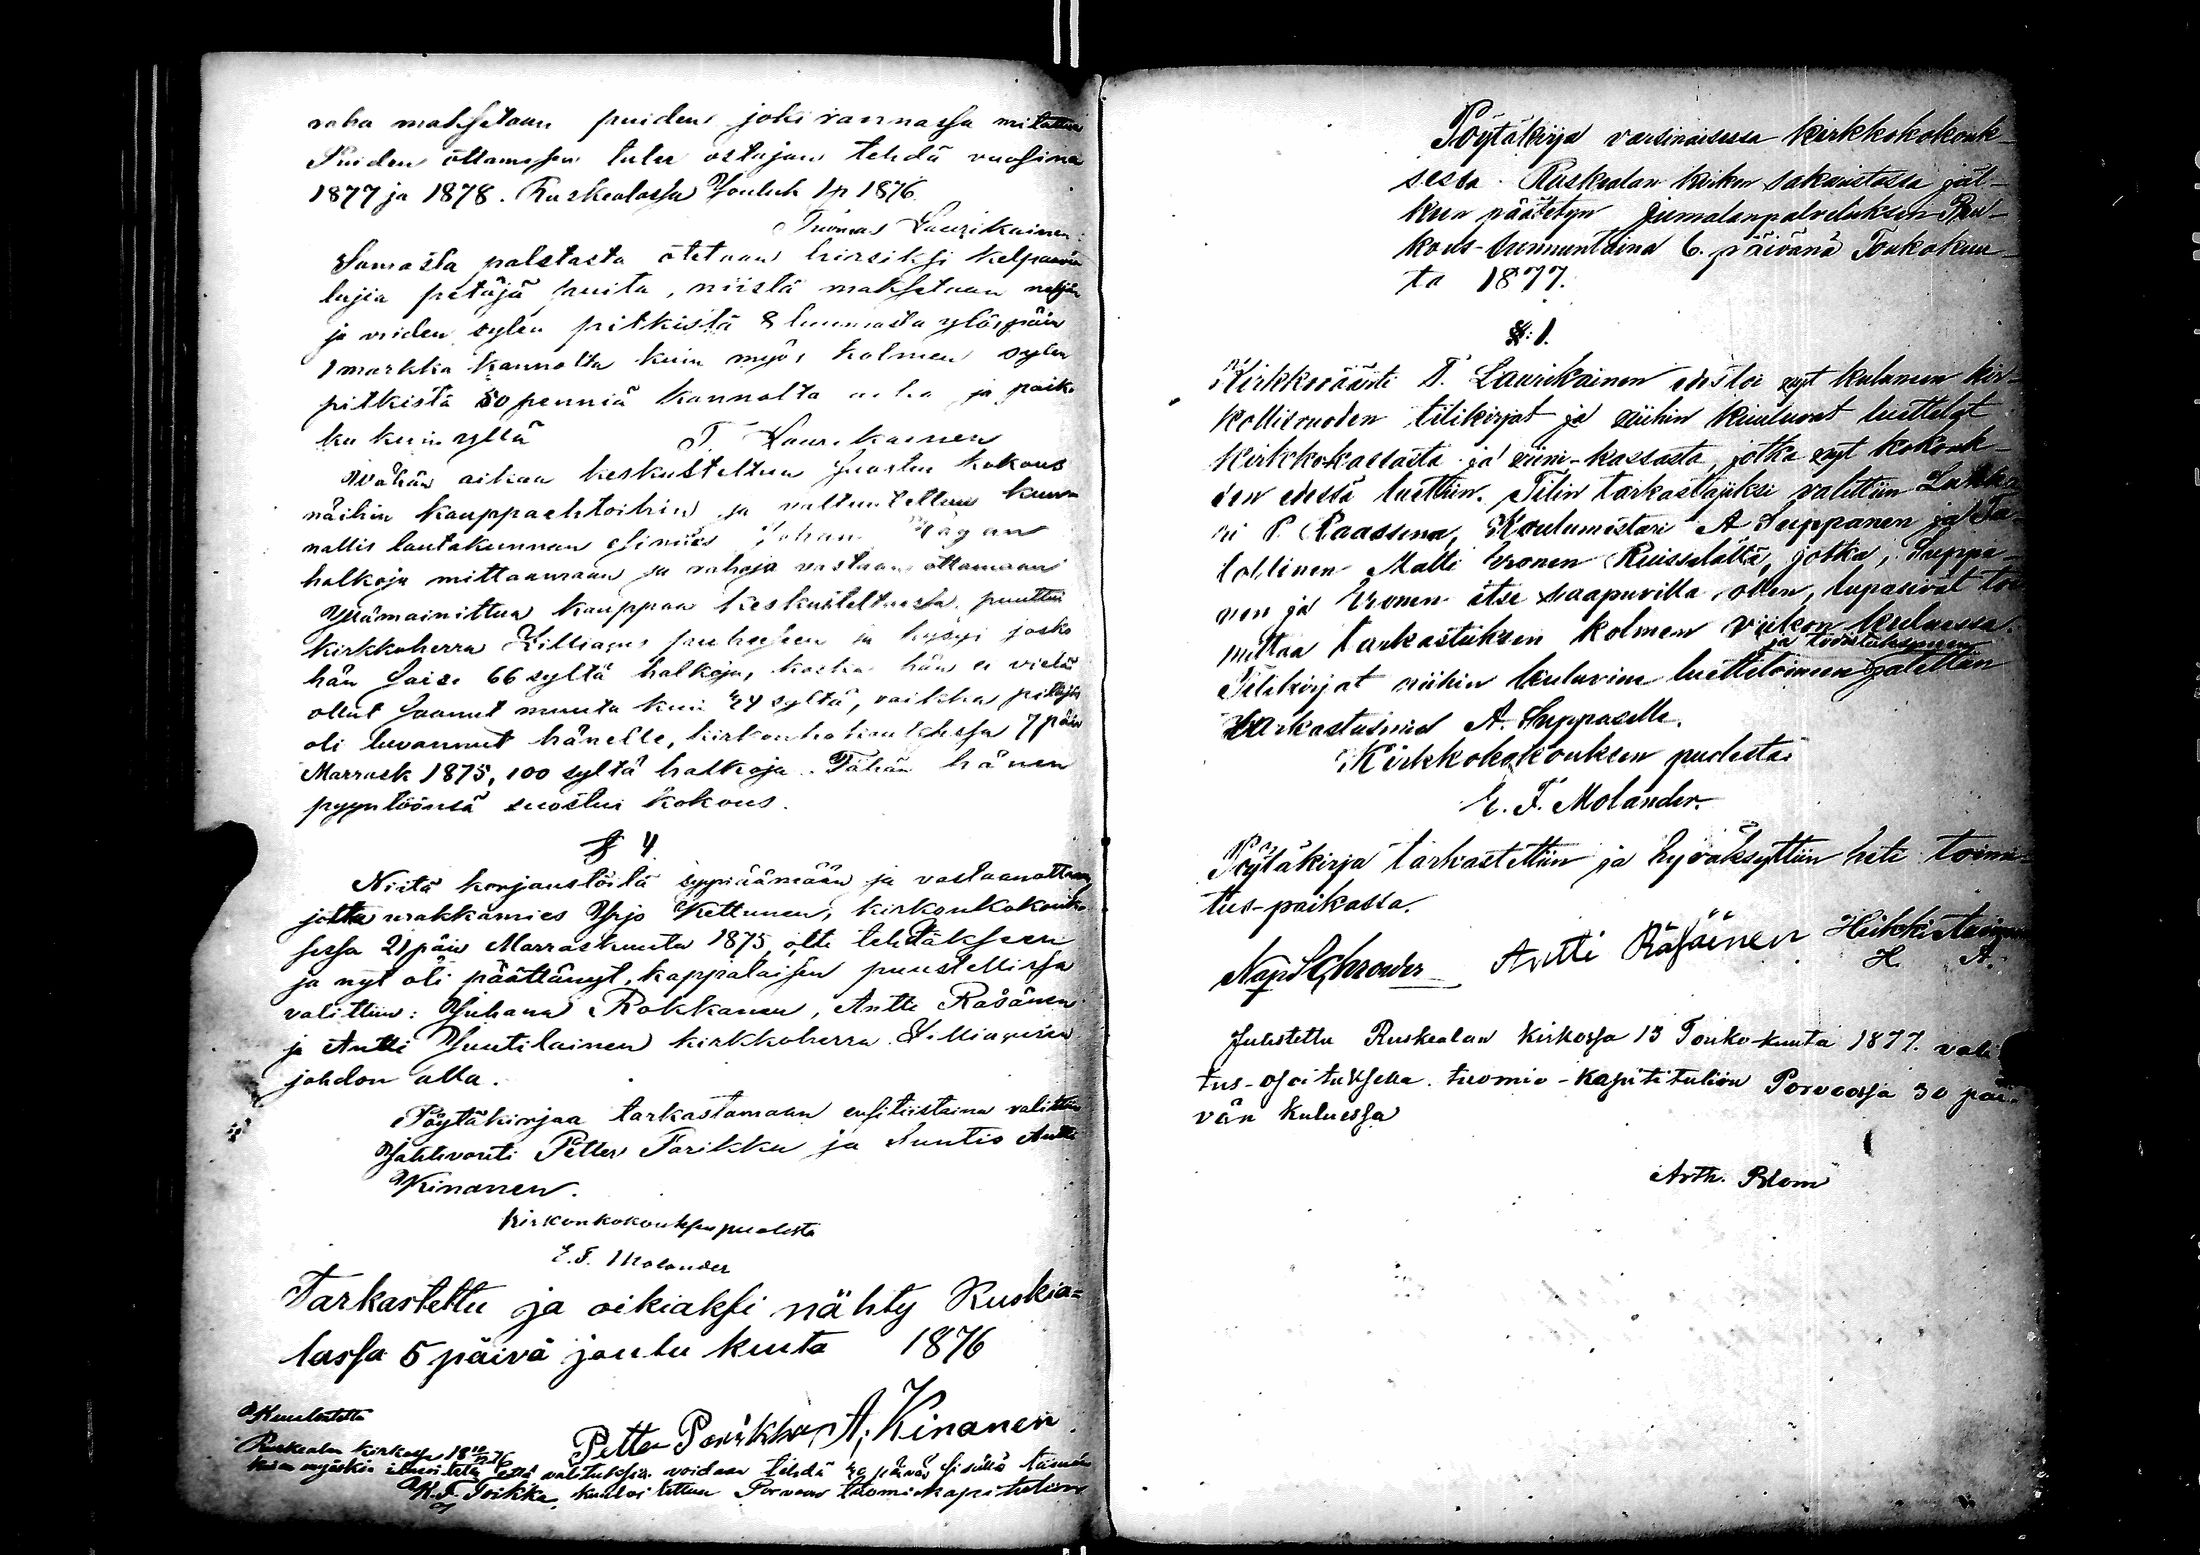 raha maksetaan puiden joki rannassa mitattua
Puiden ottamisen tulee ostajan tehdä vuosina
1877 ja 1878. Ruskealassa Jouluk 1 p 1876.
Tuomas Laurikainen.
Samasta palstasta otetaan hirsiksi kelpaavia
lujia petäjä puita, niistä maksetaan neljän
ja viiden sylen pitkistä 8 tuumasta ylöspäin
1 markka kannolta kuin myös kolmen sylen
pitkistä 50 penniä kannolta aika ja paik-
ka kuin yllä T. Laurikainen
Vähän aikaa keskusteltua suostui kokous
näihin kauppaehtoihin ja valtuutettiin kunn
nallis lautakunnan esimies Johan Hägan
halkoja mittaamaan ja rahoja vastaan ottamaan
Ylämainittua kauppaa keskusteltuessa puuttui
kirkkoherra Zilliagus puheeseen ja kysyi josko
hän saisi 66 syltä halkoja, koska hän ei vielä
ollut saanut muuta kuin 24 syltä, vaikka pitäjäs
oli luvannut hänelle, kirkonkokouksessa 7 päiv
Marrask 1875, 100 syltä halkoja. Tähän hänen
pyyntöönsä suostui kokous.
§ 4
Niitä korjaustöitä syyniäämään ja vastaanottam
jotka urakkamies Yrjo Kettunen, kirkonkokouk-
sessa 21 päiv Marraskuuta 1875, otti tehdäkseen
ja nyt oli päättänyt, kappalaisen puustellissa
valittiin: Juhana Rokkanen, Antti Räsänen
ja Antti Juutilainen kirkkoherra Zilliaguksen
johdon alla.
Pöytäkirjaa tarkastamaan ensitiistaina valittiin
Jahtivouti Petter Parikka ja Suntio Antti
Kinanen.
Kirkonkokouksen puolesta
E. F. Molander
Tarkastettu ja oikiaksi nähty Ruskia=
lassa 5 päivä joulu kuuta 1876
Petter Parikka A. Kinanen.
Kuulutettu
Ruskealan kirkossa 18 10/12 76
kuin myöskin ilmoitettu että valituksia voidaan tehdä 30 päivän sisällä
K. F. Toikka, kuuloitettua Porvoon tuomiokapitulion

Pöytäkirja varsinaisessa kirkkokokouk-
sessa Ruskealan kirkon sakaristossa jäl-
keen päätetyn jumalanpalveluksen Ru-
kous-sunnuntaina 6. päivänä Toukokuu-
ta 1877.
§. 1.
Kirkkoväärti T. Laurikainen edestoi nyt kuluneen kir-
kollisvuoden tilikirjat ja niihin kuuluvat luettelot
kirkkokassasta ja viini-kassasta, jotka nyt kokouk-
sen edessä luettiin. Tilin tarkastajiksi valittiin Lukka
ri P. Raassina, Koulumestari A Suppanen ja Ta-
lollinen Matti Eronen Ruisselältä, jotka, Suppa-
nen ja Eronen itse saapuvilla ollen, lupasivat toi
mittaa tarkastuksen kolmen viikon kuluessa.
Tilikirjat niihin kuluvine luetteloineen ja todistuksineen jätettiin
tarkastusmies A. Suppaselle.
Kirkkokokouksen puolesta:
E. F. Molander.
Pöytäkirja tarkastettiin ja hyväksyttiin heti toimi-
tus-paikassa.
Nap Schrowder Antti Räsäinen Heikki
H. A.
Julistettu Ruskealan kirkossa 13 Touko-kuuta 1877. vali
tus-osoituksella tuomio-kapitituliin Porvoossa 30 päi-
vän kuluessa
Arth. Blom